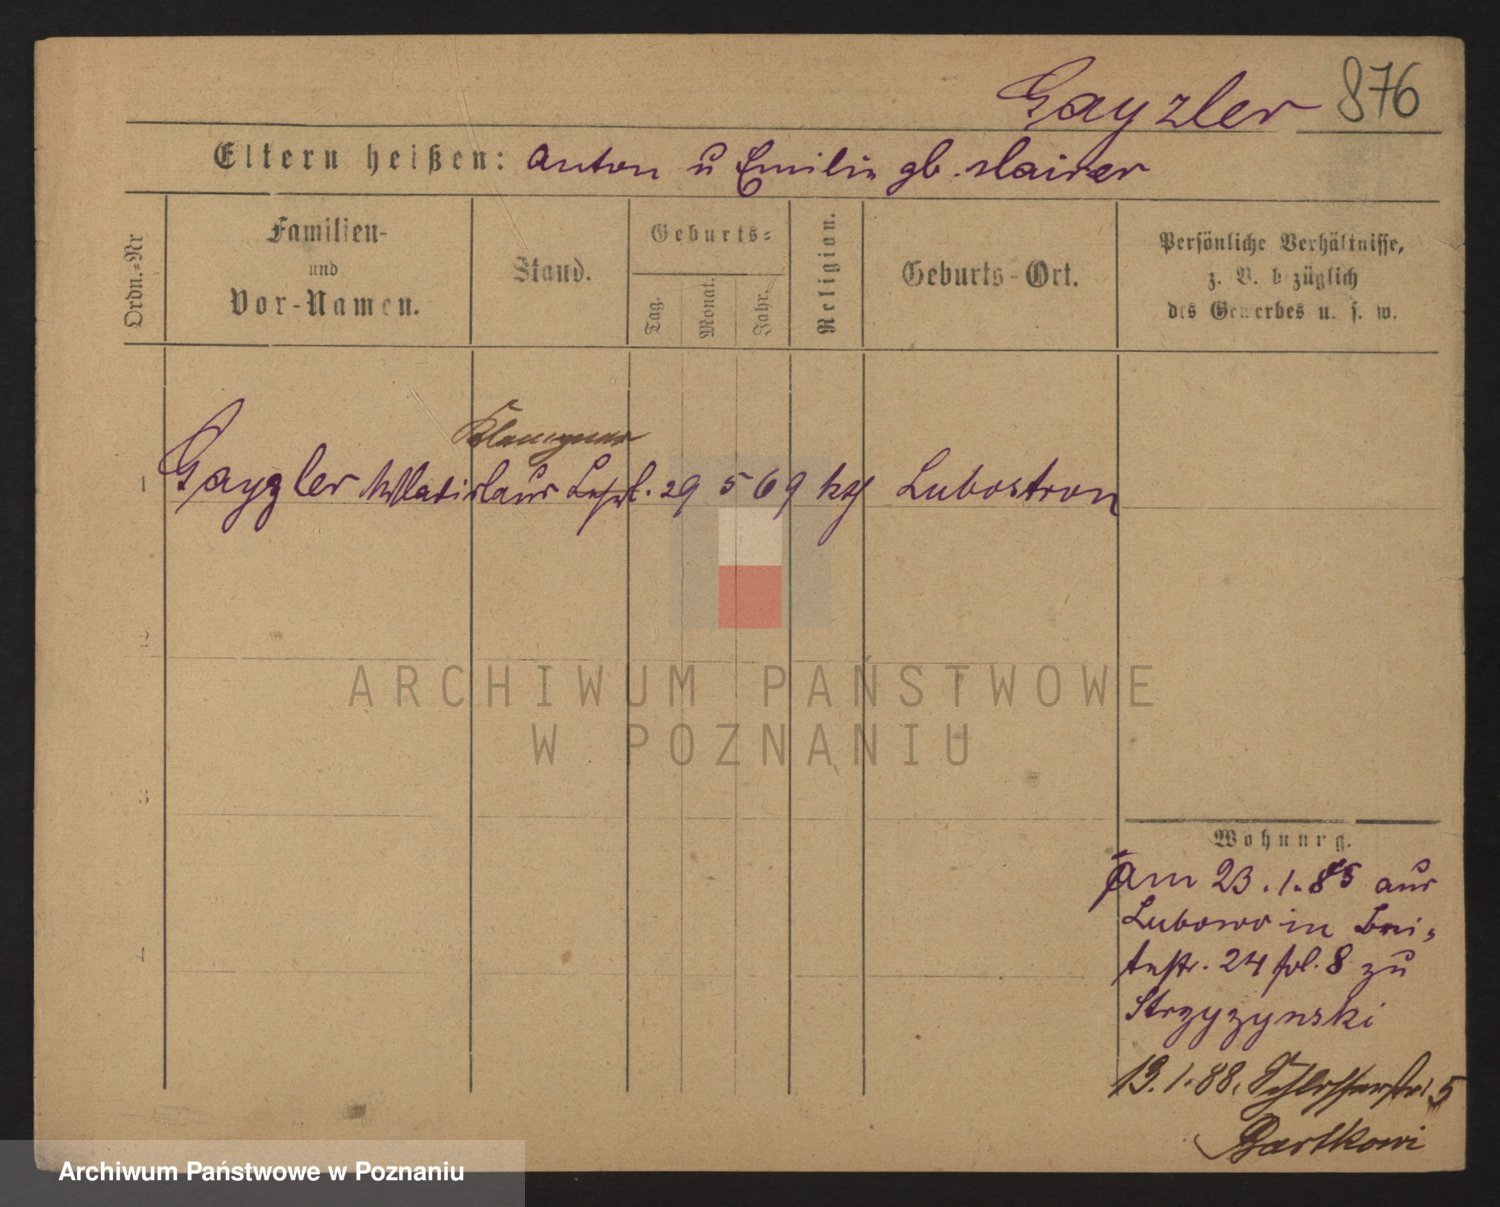 Gayzler 876
Eltern heißen: Anton u Emilie gb. Mairer
Ordn.=Nr
Familien-
und
Vor-Namen.
Stand.
Geburts=
Tag.
Monat.
Jahr.
Religion.
Geburts-Ort.
Persönliche Verhältnisse,
z. B. bezüglich
des Gewerbes u. s. w.
Klempner
1 Gayzler Wladislaus Lehrl. 29 5 69 kth Lubostron
2
3
4
ARCHIWUM PAŃSTWOWE
W POZNANIU
Wohnung.
Am 23.1.85 aus
Lubowo in Brei=
testr. 24 fol. 8 zu
Strzyzynski
13.1.88. Schlosserstr. 5
Bartkowi
Archiwum Państwowe w Poznaniu